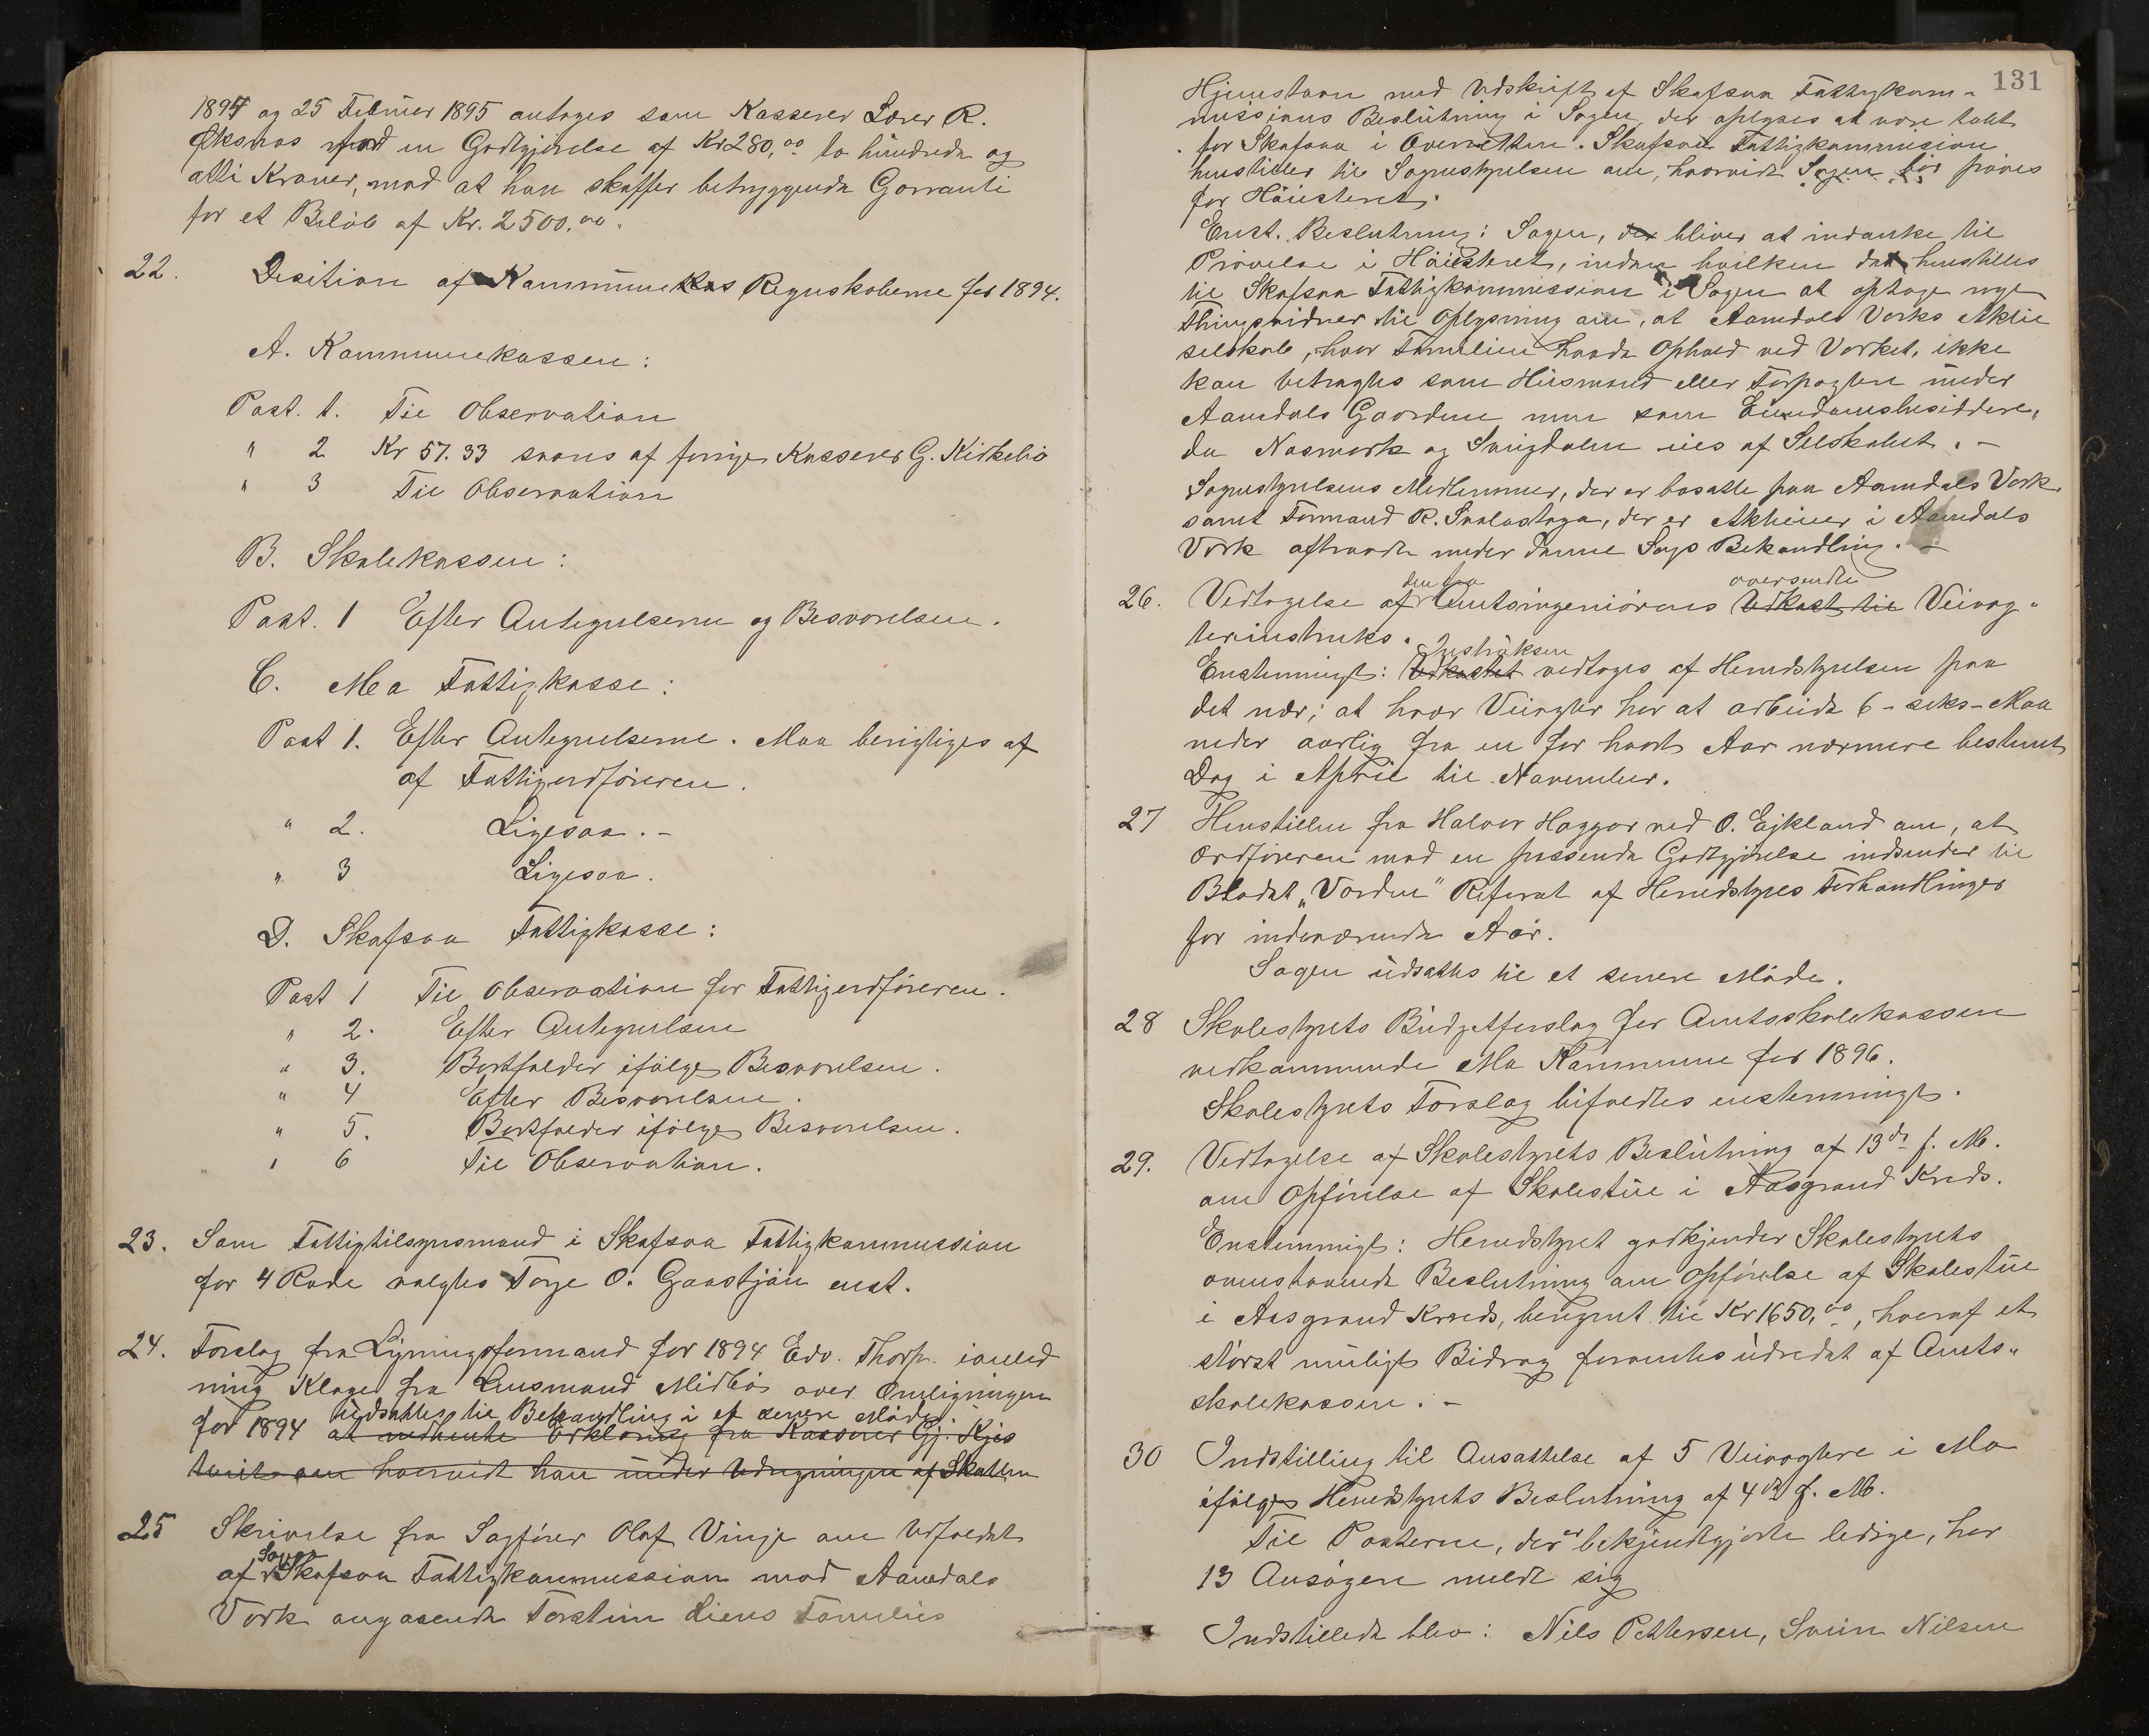 1894 og 25 Februer 1895 antages som Kasserer Lærer R.
Øksnæs mod en Godtgjørelse af Kr 280,00 to hundrede og
otti Kroner, mod at han skaffer betryggende Garranti
for et Beløb af Kr. 2500,00.
22. Desition af Kommunekas Regnskaberne for 1894.
A. Kommunekassen:
Post. 1. Til Observation
" 2 Kr 57.33 svares af forrige Kasserer G. Kirkebø
" 3 Til Observation
B. Skolekassen:
Post. 1 Efter Antegnelserne og Besvarelsen.
C. Mo Fattigkasse:
Post 1. Efter Antegnelserne. Maa berigtiges af
af Fattigordføreren.
" 2. Ligesaa. -
" 3 Ligesaa.
D. Skafsaa Fattigkasse:
Post 1 Til Observation for Fattigordføreren.
" 2. Efter Antegnelsen
" 3. Bortfalder ifølge Besvarelsen.
" 4 Efter Besvarelsen.
" 5. Bortfalder ifølge Besvarelsen.
" 6 Til Observation.
23. Som Fattigtilsynsmand i Skafsaa Fattigkommission
for 4 Rode valgtes Torje O. Gaastjøn enst.
24. Forslag fra Ligningsformand for 1894 Edv. Thorp. ianled
ning Klage fra Lensmand Midbø over Omligningen
udsattes til Behandling i et senere Møde.
for 1894 at indhente Erklæring fra Kasserer Gj.
om hvorvidt han under Udregningen af Skatten
25 Skrivelse fra Sagfører Olaf Vinje om Udfaldet
Sagen
af Skafsaa Fattigkommission mod Aamdals
Værk angaaende Torstein Liens Families
131
Hjemstavn med Udskrift af Skafsaa Fattigkom-
missions Beslutning i Sagen, der oplyses at være tabt
for Skafsaa i Overretten. Skafsaa Fattigkommission
henstiller til Sognestyrelsen om, hvorvidt Sagen bør prøves
for Høiesteret.
Enst. Beslutning: Sagen, der bliver at indanke til
Prøvelse i Høiesteret, inden hvilken det henstilles
til Skafsaa Fattigkommission i Sagen at optage nye
Thingsvidner til Oplysning om, at Aamdals Værks Aktie
selskab, hvor Familien havde Ophold ved Værket, ikke
kan betragtes som Husmand eller Forpagter under
Aamdals Gaardene men som Eiendomsbesiddere,
da Næsmark og Svingdalen eies af Selskabet. -
Sognestyrelsens Medlemmer, der er bosatte paa Aamdals Værk
samt Formand R. Skalastoga, der er Aktieeier i Aamdals
Værk aftraadte under denne Sags Behandling. -
den fra oversendte
26. Vedtagelse af Amtsingeniørens Udkast til Veivog-
terinstruks.
Instruksen
Enstemmigt: Udkastet vedtages af Herredstyrelsen paa
det nær; at hver Veivogter har at arbeide 6 - seks - Maa
neder aarlig fra en for hvert Aar nærmere bestemt
Dag i April til November.
27 Henstillen fra Halvor Høggor ved O. Eikland om, at
Ordføreren mod en passende Godtgjørelse indsender til
Bladet "Varden" Referat af Herredstyres Forhandlinger
for indeværende Aar.
Sagen udsattes til et senere Møde.
28 Skolestyrets Budgetforslag for Amtsskolekassen
vedkommende Mo Kommune for 1896.
Skolestyrets Forslag bifaldtes enstemmigt.
29. Vedtagelse af Skolestyrets Beslutning af 13de f. M.
om Opførelse af Skolestue i Aasgrand Kreds.
Enstemmigt: Herredstyret godkjender Skolestyrets
ovenstaaende Beslutning om Opførelse af Skolestue
i Aasgrand Kreds, beregnet til Kr 1650,00, hvoraf et
størst muligt Bidrag forventes udredet af Amts-
skolekassen. -
30 Indstilling til Ansættelse af 5 Veivogtere i Mo
ifølge Herredstyrets Beslutning af 4de f. M.
Til Posterne, der er bekjendtgjorte ledige, har
13 Ansøgere meldt sig
Indstillede blev: Nils Pettersen, Svein Nilsen